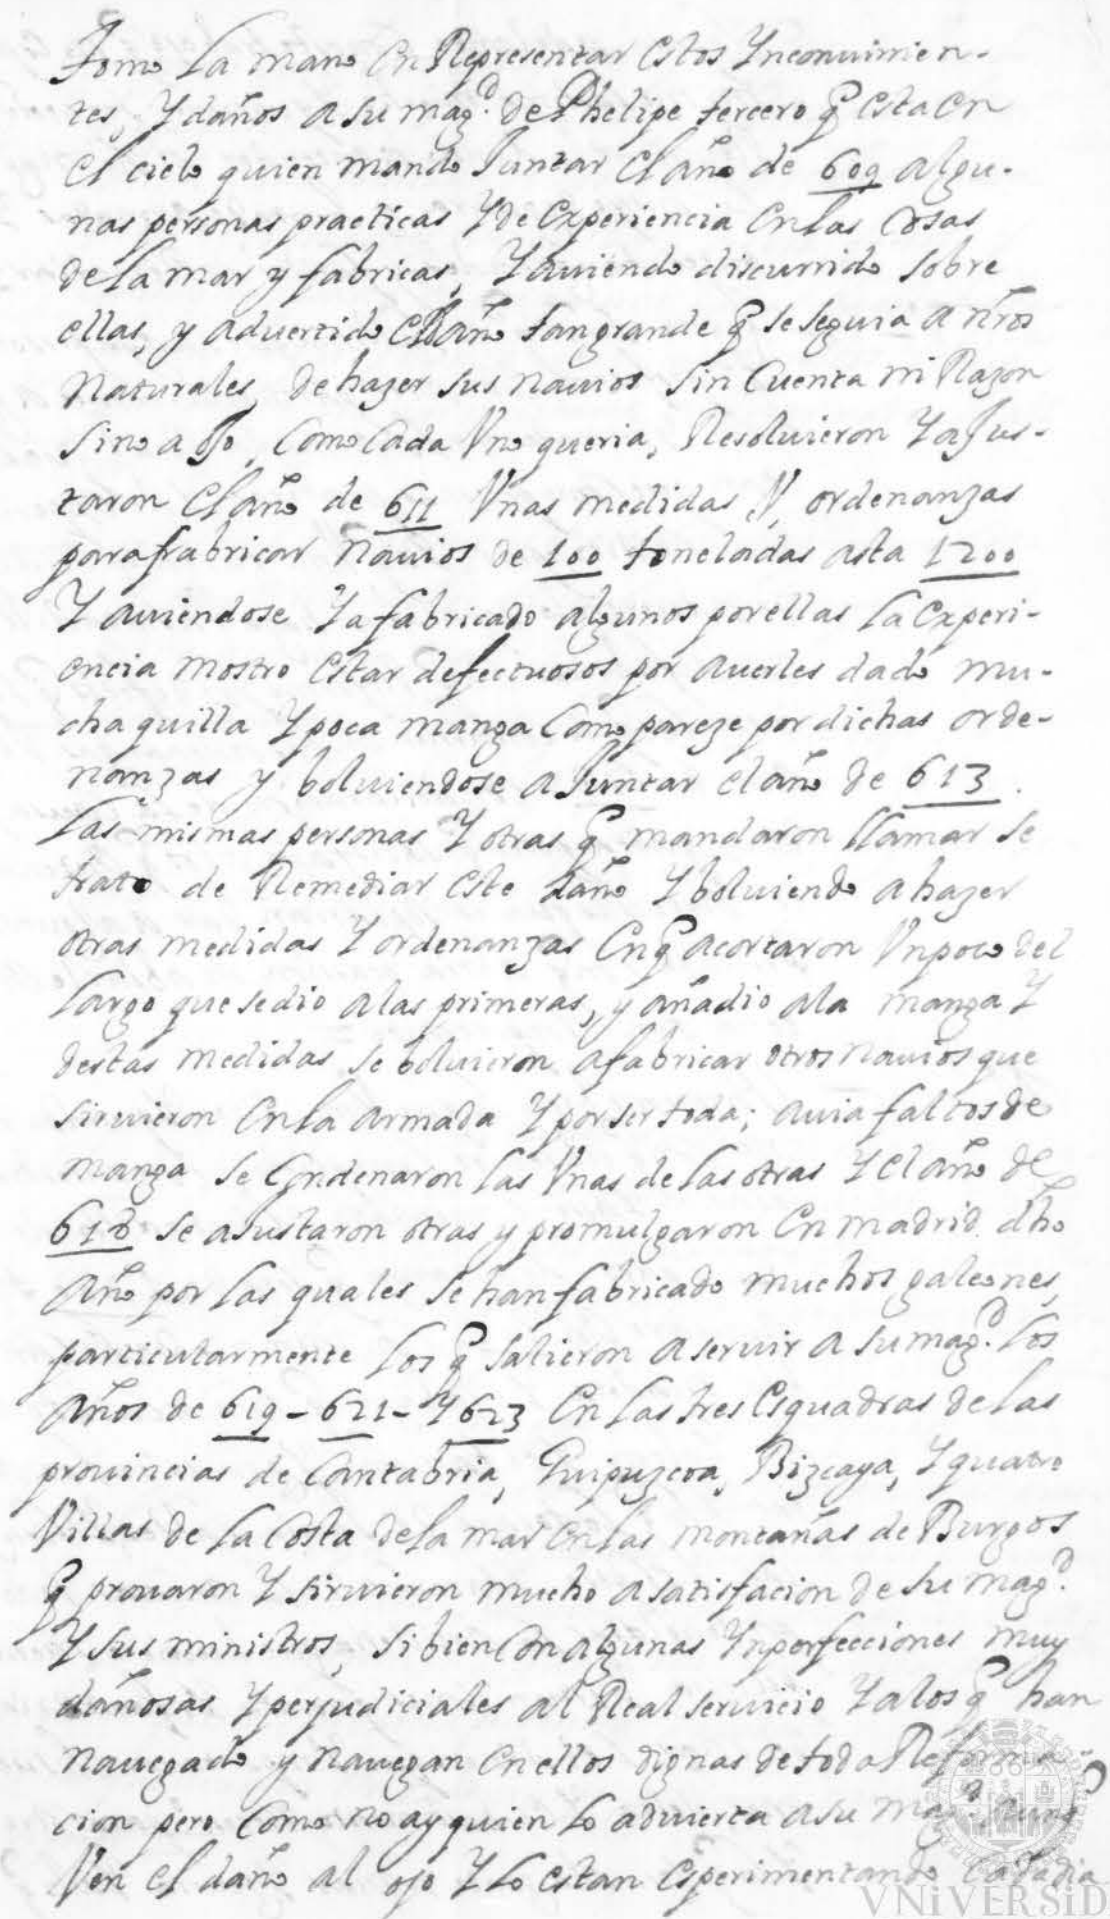 Tomo la mano en Representar estos Ynconuinien-
tes, Y daños a su magd. de Phelipe tercero q esta en
el cielo quien mando Juntar el año de 609 algu-
nas personas practicas Y de experiencia en las cosas
de la mar y fabricas, Y auiendo discurrido sobre
ellas, y aduertido el daño tan grande q se seguia a nros
Naturales, de hazer sus nauios sin Cuenta ni Razon
sino a ojo, como cada Vno queria, Resoluieron Y ajus-
taron el año de 611 Vnas medidas, Y, ordenanzas
para fabricar Nauios de 100 toneladas asta 1200
Y auiendose Ya fabricado algunos por ellas la experi-
encia mostro estar defectuosos por auerles dado mu-
cha quilla Y poca manga como pareze por dichas orde-
nanzas y boluiendose a Juntar el año de 613.
las mismas personas Y otras q mandaron llamar se
trato de Remediar este daño Y boluiendo a hazer
otras medidas Y ordenanzas en q acortaron Vn poco del
largo que se dio a las primeras, y añadio a la manga Y
destas medidas se boluieron a fabricar otros nauios que
siruieron en la armada Y por ser toda; auia faltos de
manga se condenaron las Vnas de las otras Y el año de
618 se ajustaron otras y promulgaron en madrid dho
Año por las quales se han fabricado muchos galeones,
particularmente los q salieron a seruir a su magd. los
Años de 619 - 621 - Y 623 en las tres esquadras de las
prouincias de Cantabria, Guipuzcoa, Bizcaya, Y quatro
Villas de la Costa de la mar en las montañas de Burgos
q prouaron Y siruieron mucho a satisfacion de su magd.
Y sus ministros, si bien con algunas Ynperfecciones muy
dañosas Y perjudiciales al Real seruicio Y a los q han
Nauegado y nauegan en ellos dignas de toda Reforma-
cion pero como no ay quien lo aduierta a su magd.
Ven el daño al ojo Y lo estan esperimentando cada dia
VNiVERSiD